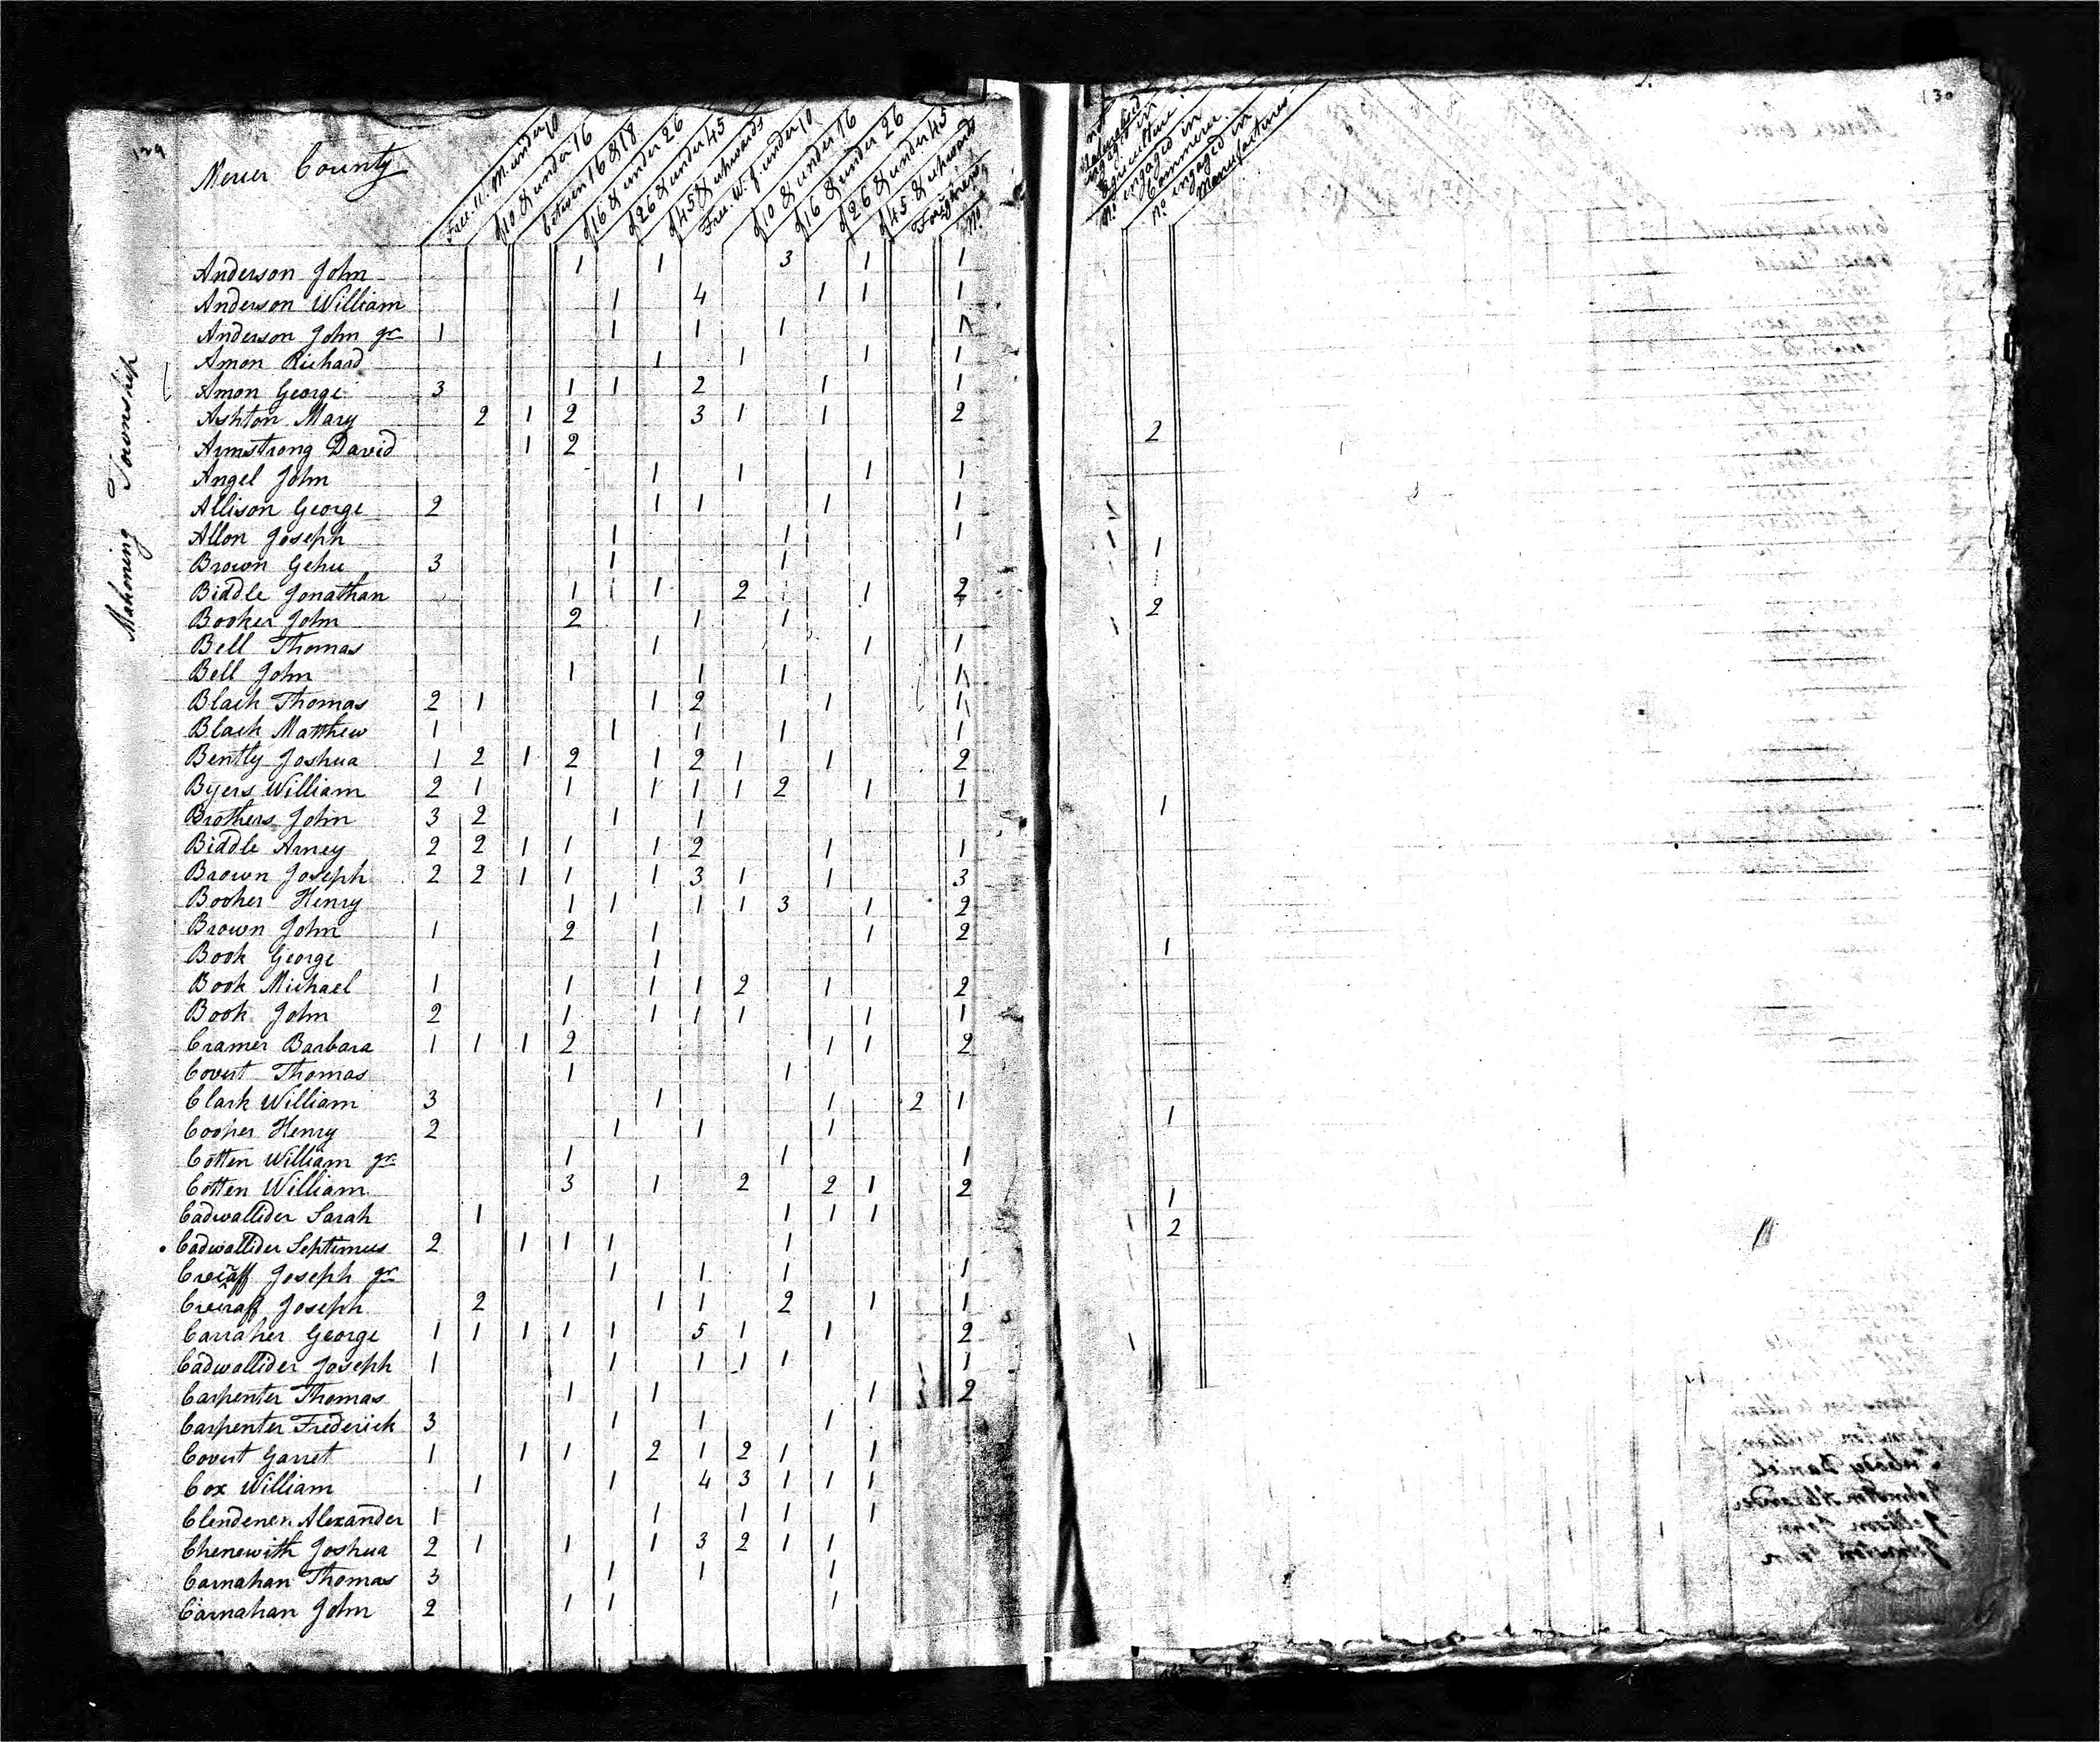 129
130
Mercer County
Mahoning Township
Free W. M. under 10
of 10 & under 16
between 16 & 18
of 16 & under 26
of 26 & under 45
of 45 & upwards
Free. W. f. under 10
of 10 & under 16
of 16 & under 26
of 26 & under 45
of 45 & upwards
Foreigners not Naturalized
No. engaged in Agriculture
No. engaged in Commerce
No. engaged in Manufactures
Anderson John 1 1 3 1 1
Anderson William 1 4 1 1 1
Anderson John Jr 1 1 1 1 1
Amon Richard 1 1 1 1
Amon George 3 1 1 2 1 1
Ashton Mary 2 1 2 3 1 1 2
Armstrong David 1 2 2
Angel John 1 1 1 1
Allison George 2 1 1 1 1
Allon Joseph 1 1 1
Brown Gehu 3 1 1 1
Biddle Jonathan 1 1 1 2 1 2
Booher John 2 1 1 2
Bell Thomas 1 1 1
Bell John 1 1 1 1
Black Thomas 2 1 1 2 1 1
Black Matthew 1 1 1 1 1
Bently Joshua 1 2 1 2 1 2 1 1 2
Byers William 2 1 1 1 1 1 2 1 1
Brothers John 3 2 1 1 1
Biddle Arney 2 2 1 1 1 2 1 1
Brown Joseph 2 2 1 1 1 3 1 1 3
Booher Henry 1 1 1 1 3 1 2
Brown John 1 2 1 1 2
Book George 1 1
Book Michael 1 1 1 1 2 1 2
Book John 2 1 1 1 1 1 1
Cramer Barbara 1 1 1 2 1 1 2
Covert Thomas 1 1
Clark William 3 1 1 2 1
Cooper Henry 2 1 1 1 1
Cotten William Jr 1 1 1
Cotten William 3 1 2 2 1 2
Cadwallider Sarah 1 1 1 1 1
Cadwallider Septimus 2 1 1 1 1 2
Joseph Jr 1 1 1 1
Joseph 2 1 1 2 1 1
Carraher George 1 1 1 1 1 5 1 1 2
Cadwallider Joseph 1 1 1 1 1 1
Carpenter Thomas 1 1 1 2
Carpenter Frederick 3 1 1 1
Covert Garret 1 1 1 2 1 2 1 1
Cox William 1 1 4 3 1 1 1
Clendenen Alexander 1 1 1 1 1
Chenewith Joshua 2 1 1 1 3 2 1 1
Carnahan Thomas 3 1 1 1
Carnahan John 2 1 1 1